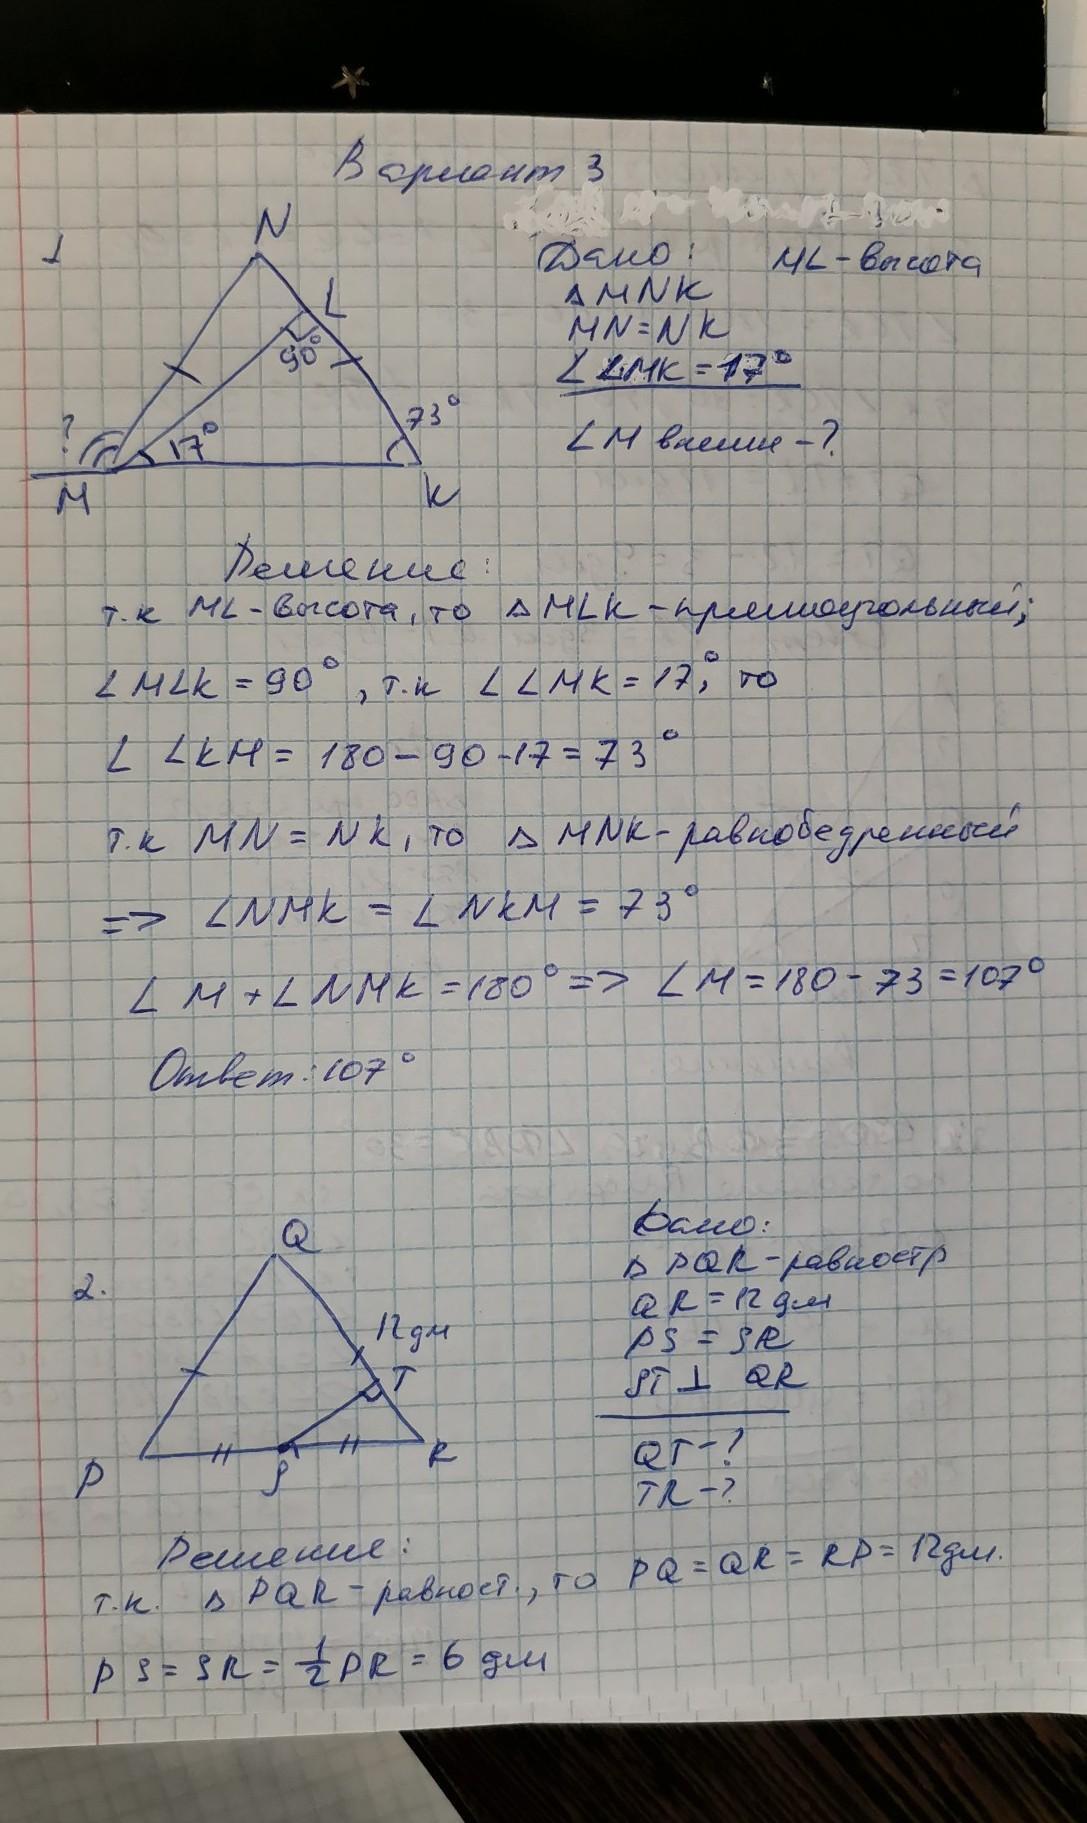 Вариант 3
1
N
L
90°
73°
?
17°
M
K
Дано: ML - высота
△ MNK
MN = NK
∠ LMK = 17°
∠ M внешн - ?
Решение:
т.к ML - высота, то △ MLK - прямоугольный;
∠ MLK = 90°, т.к ∠ LMK = 17°, то
∠ LKM = 180 - 90 - 17 = 73°
т.к MN = NK, то △ MNK - равнобедренный
=> ∠NMK = ∠ NKM = 73°
∠ M + ∠ NMK = 180° => ∠ M = 180 - 73 = 107°
Ответ: 107°
2.
Q
12 дм
T
P
S
R
Дано:
△ PQR - равностр
QR = 12 дм
PS = SR
ST ⊥ QR
QT - ?
TR - ?
Решение:
т.к. △ PQR - равност., то PQ = QR = RP = 12 дм.
PS = SR = 1/2 PR = 6 дм